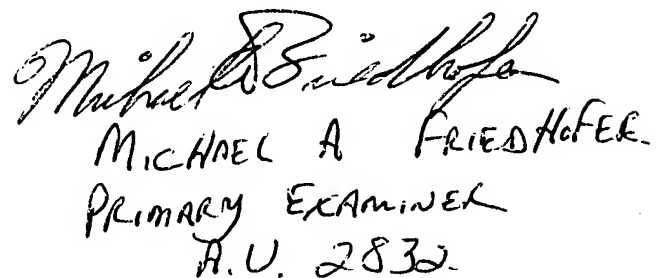 Michael A Friedhofer
MICHAEL A FRIEDHOFER
PRIMARY EXAMINER
A.U. 2832